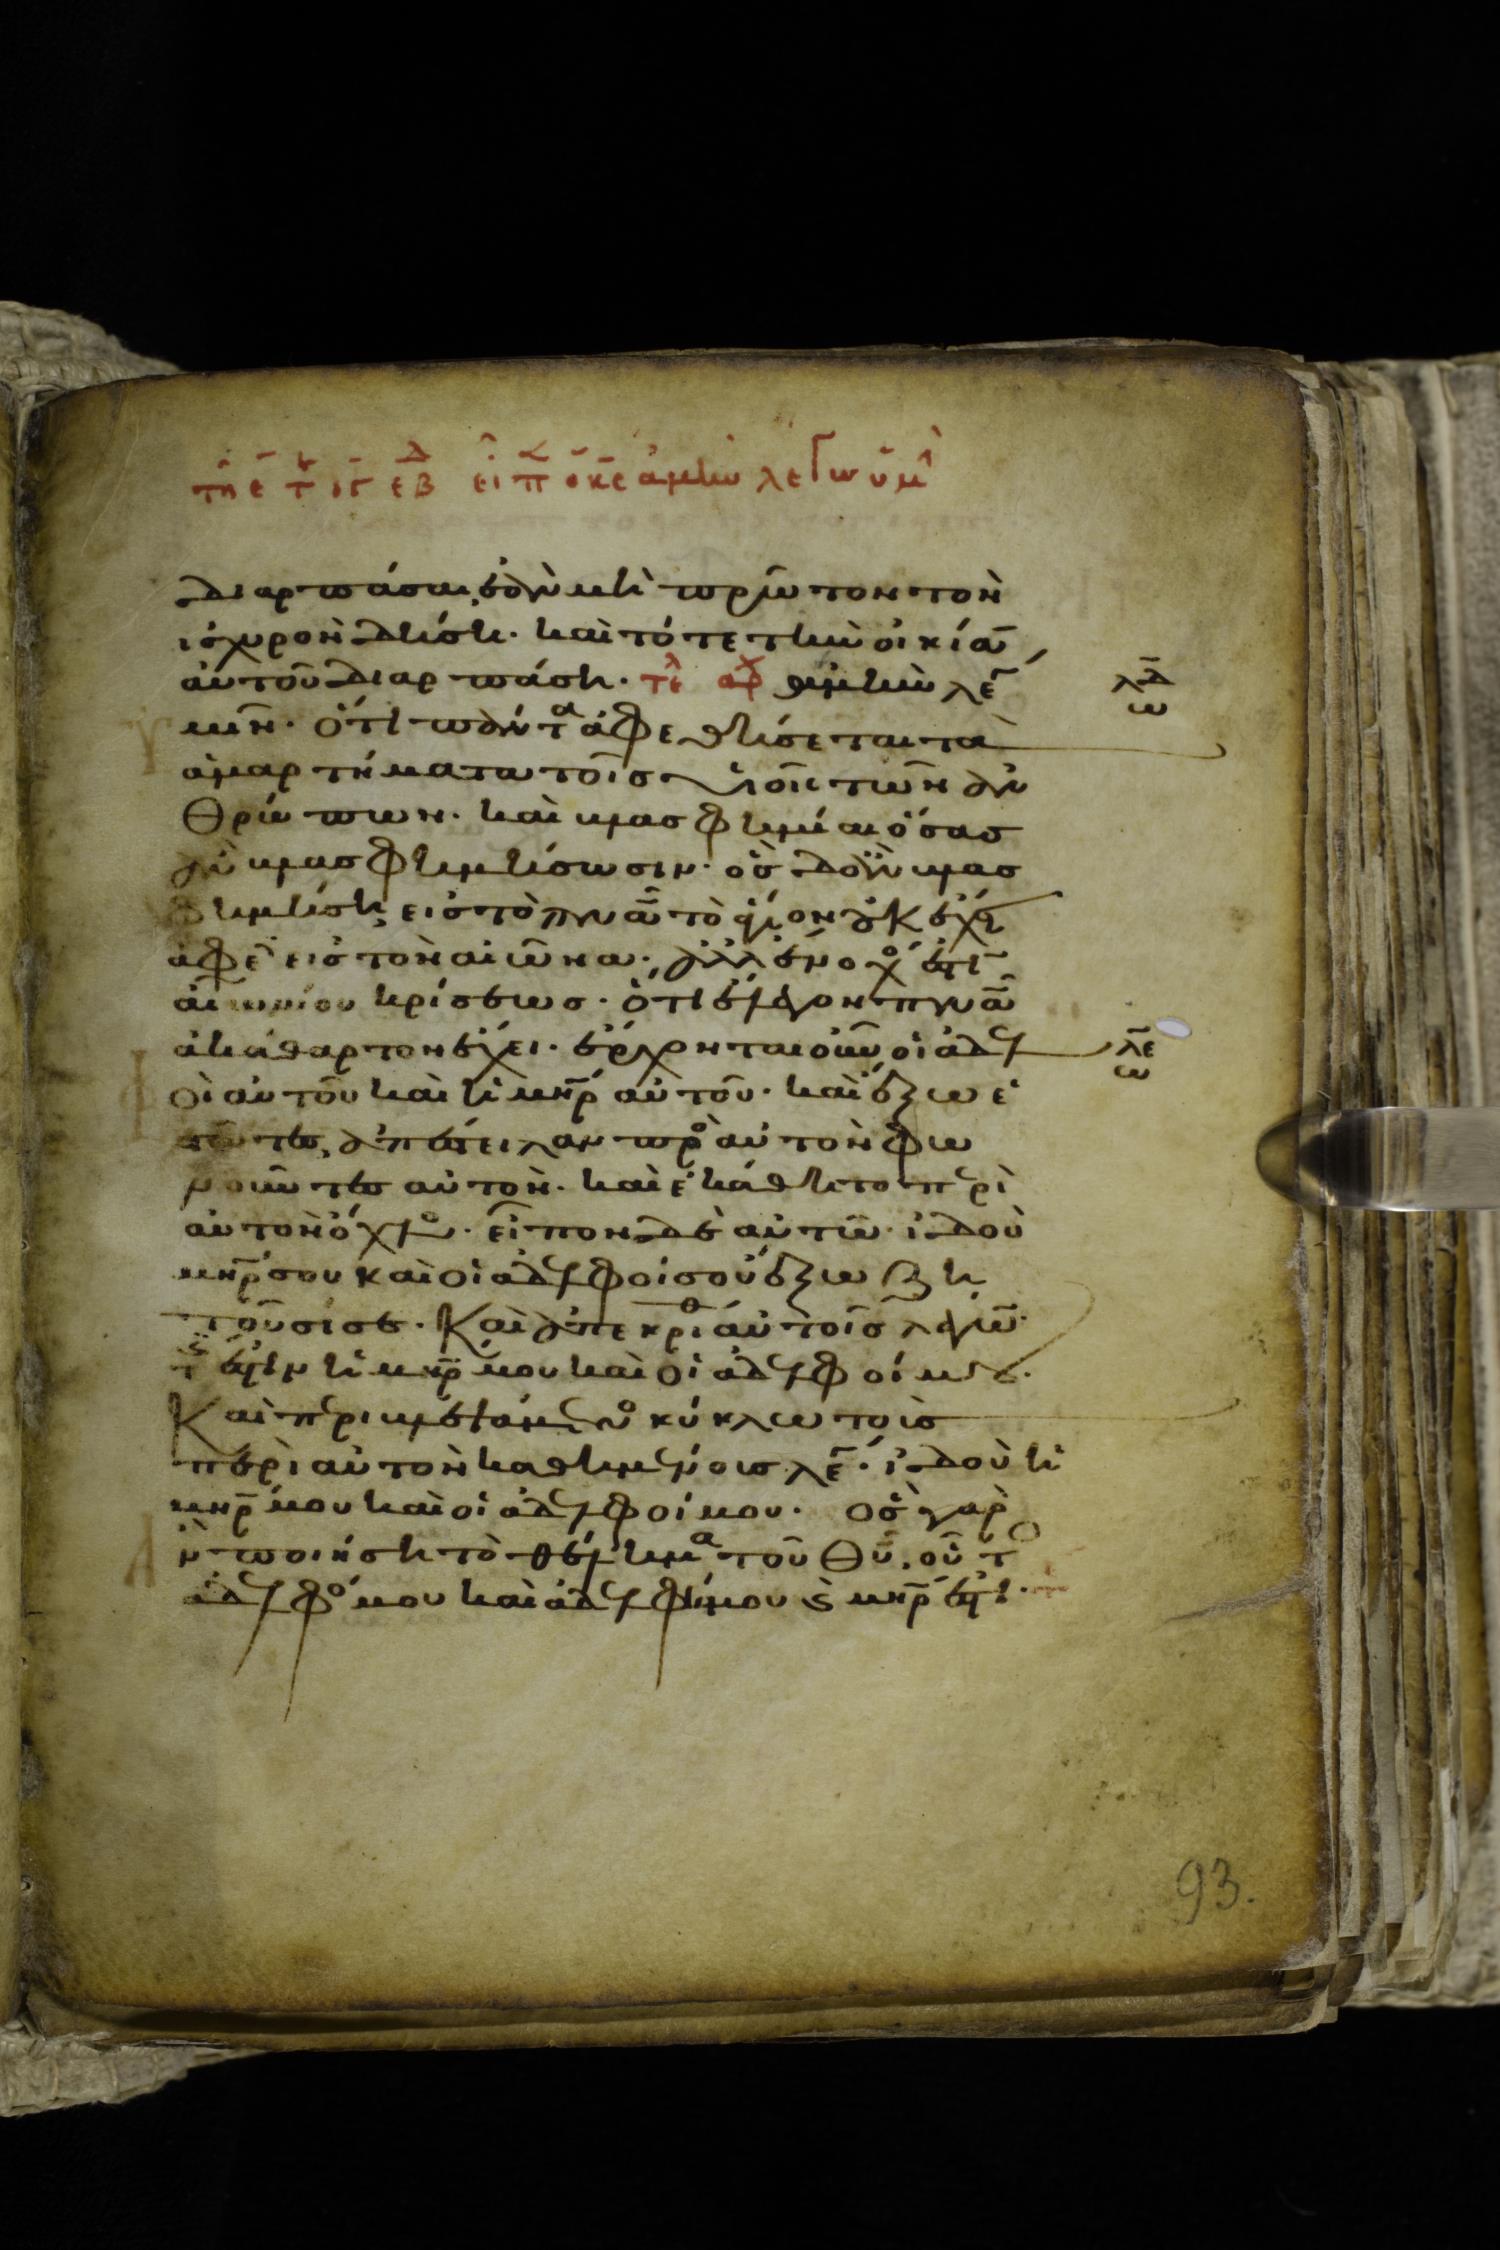 τῆ ε̄ τ ιγ εβδ εἶπ ὁ κ̄ε ἀμὴν λέγω ὑμῖ
διαρπάσαι, ἐὰν μὴ πρῶτον τὸν
ἰσχυρὸν δήση. καὶ τότε τὴν οἰκία
αὐτοῦ διαρπάση. τε ἀρχ ἀμὴν λε
λδ
ω
μῖν. ὅτι πάντα ἀφεθήσεται τὰ
ἁμαρτήματα τοῖς υἱοῖς τῶν ἀν
θρώπων. καὶ βλασφημίαι ὅσας
ἂν βλασφημήσωσιν. ὃς δ' ἂν βλασ
φημήση εἰς τὸ πνᾶ τὸ ἅγιον οὐκ ἔχει
ἄφε εἰς τὸν αἰῶνα. ἀλλ' ἔνοχο ἐστὶ
αἰωνίου κρίσεως. ὅτι ἔλεγον πνᾶ
ἀκάθαρτον ἔχει. ἔρχονται οὖν οἱ ἀδελ
λε
ω
φοὶ αὐτοῦ καὶ ἡ μηρ αὐτοῦ. καὶ ἔξω ἑ
στῶτες, ἀπέστειλαν προ αὐτὸν φω
νοῦντες αὐτὸν. καὶ ἐκάθητο περὶ
αὐτὸν ὄχλο. εἶπον δὲ αὐτῶ. ἰδοὺ
μηρ σου καὶ οἱ ἀδελφοί σου ἔξω ζη
τοῦσί σε. Καὶ ἀπεκρίθ αὐτοῖς λέγων.
τίς ἐστιν ἡ μηρ μου καὶ οἱ ἀδελφοί μου.
Καὶ περιβλεψάμενο κύκλω τοὺς
περὶ αὐτὸν καθημένους λε. ἰδοὺ ἡ
μηρ μου καὶ οἱ ἀδελφοί μου. ὃς γὰρ
ἂν ποιήση τὸ θέλημα τοῦ Θῦ, οὗτο
ἀδελφό μου καὶ ἀδελφή μου καὶ μηρ ἐστί.
93.